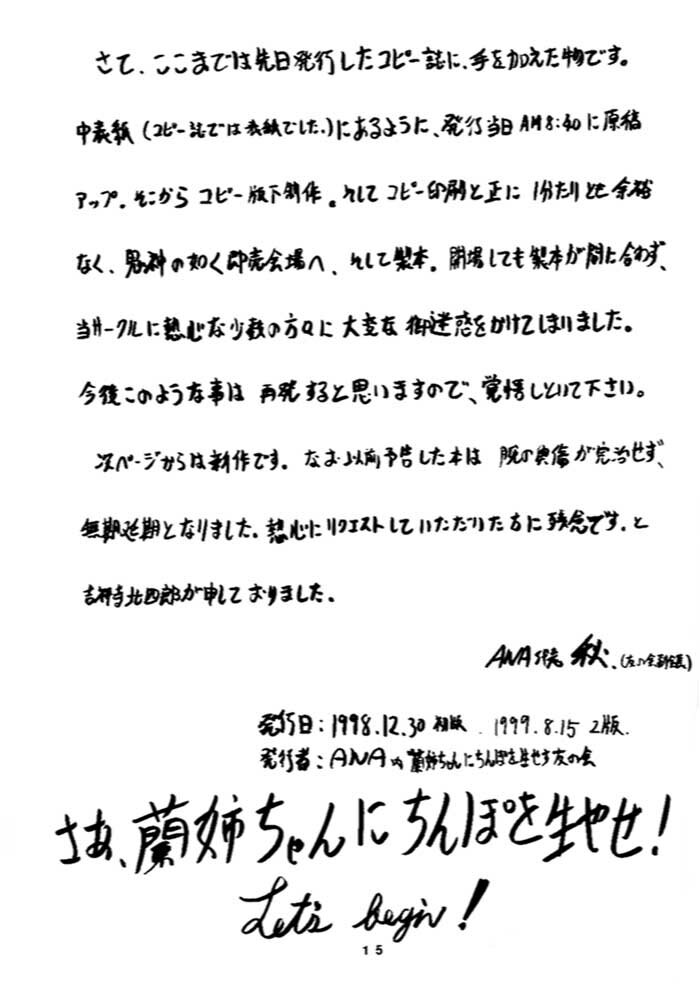 さて、ここまでは先日発行したコピー誌に、手を加えた物です。
中表紙（コピー誌では表紙でした。）にあるように、発行当日AM8:40に原稿
アップ。そこからコピー版下制作。そしてコピー印刷と正に1分たりとも余裕
なく、鬼神の如く即売会場へ、そして製本。開場しても製本が間に合わず、
当サークルに熱心な少数の方々に大変な御迷惑をかけてしまいました。
今後このような事は再発すると思いますので、覚悟しといて下さい。
次ページからは新作です。なお以前予告した本は 腕の負傷が完治せず、
無期延期となりました。熱心にリクエストしていただいた方に残念です。と
吉祥寺北四郎が申しておりました。
ANA 秋.
発行日：1998.12.30 初版 . 1999.8.15 2版.
発行者：ANA内 蘭姉ちゃんにちんぽを生やす友の会
さあ、蘭姉ちゃんにちんぽを生やせ！
Let's begin！
15